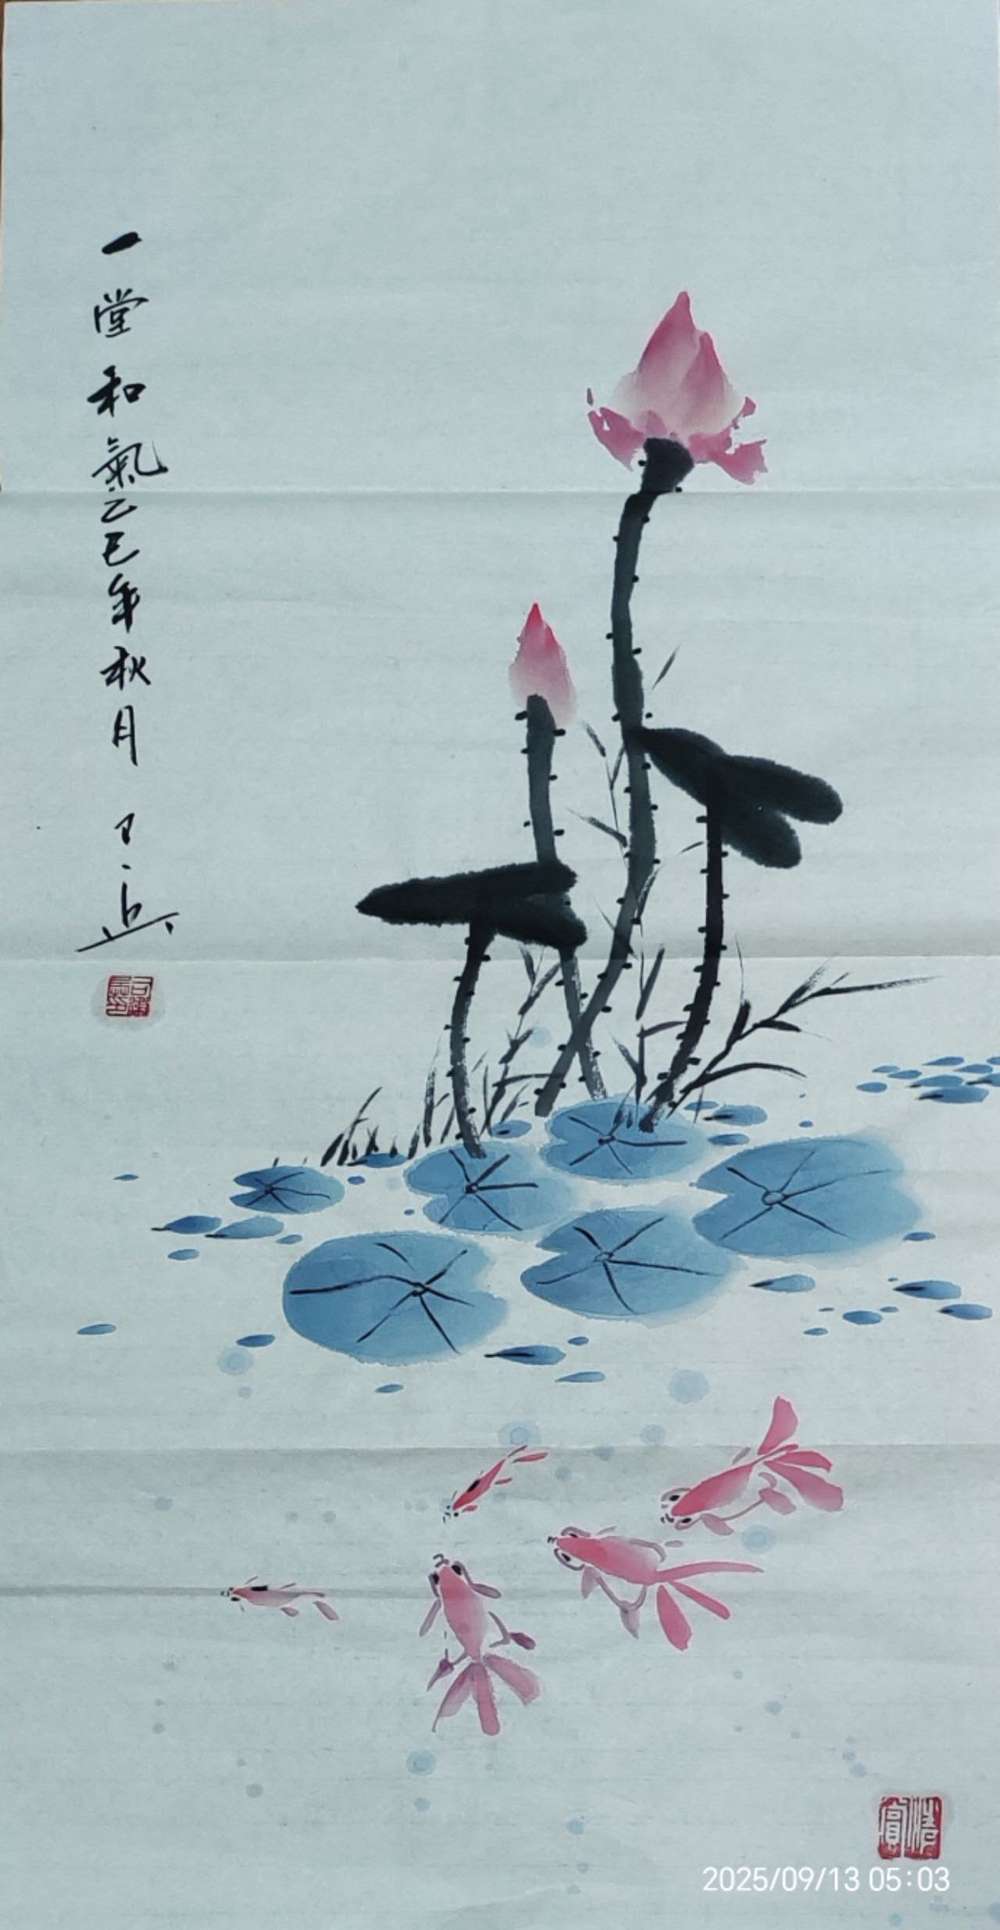 一堂和氣乙巳年秋月
2025/09/13 05:03